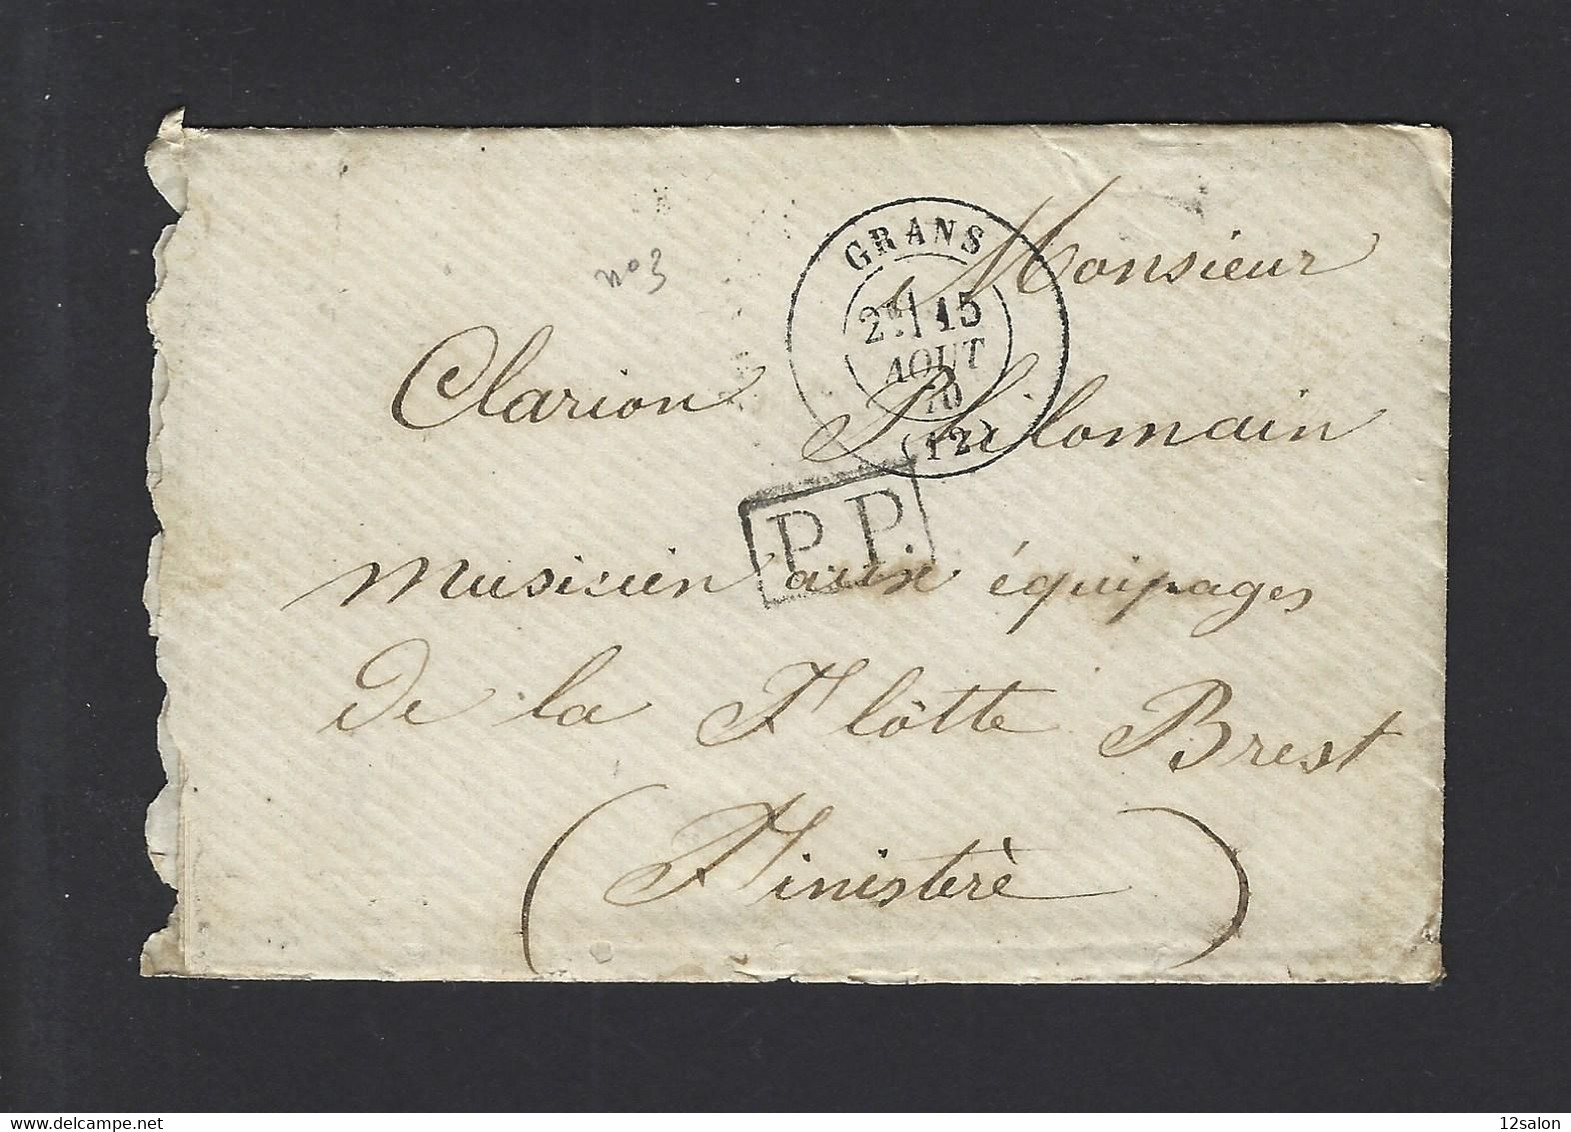 GRANS
2E 15
AOUT
70
(12)
n°3
Monsieur
Clarion Philomain
P.P.
musicien aux équipages
de la Flôtte Brest
(Finistèrè)
www.delcampe.net
12salon